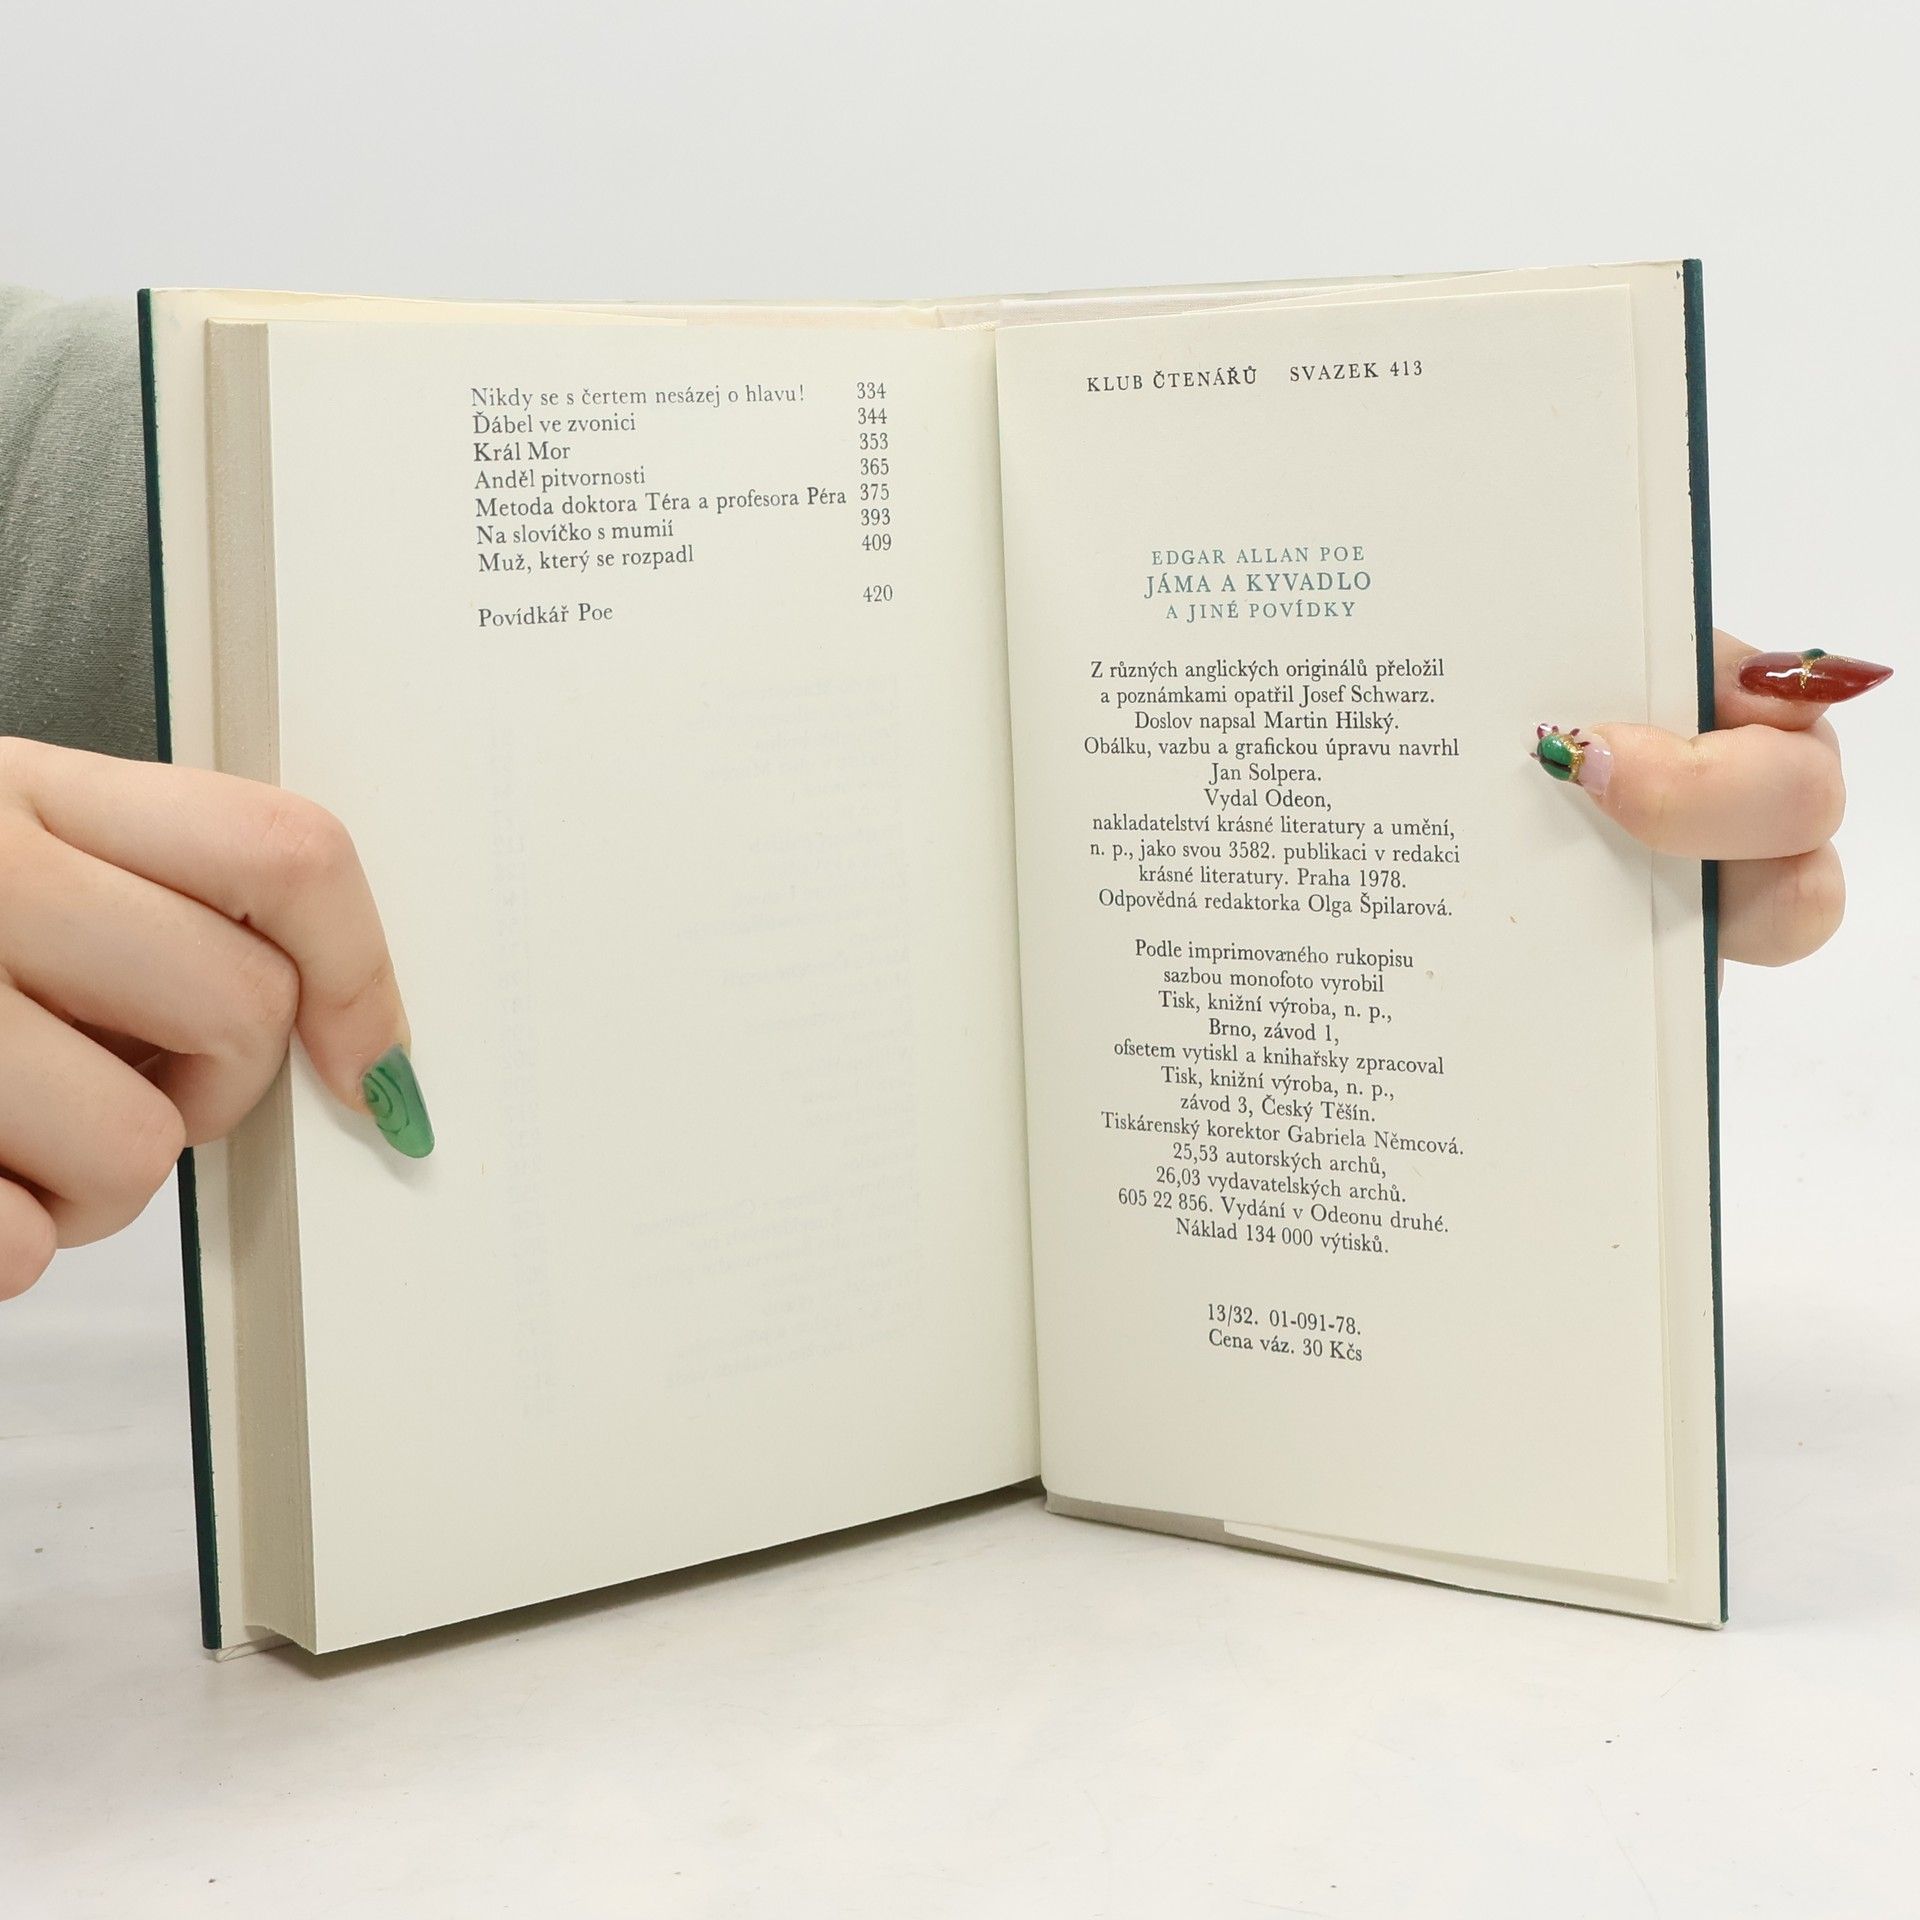 Nikdy se s čertem nesázej o hlavu! 334
Ďábel ve zvonici 344
Král Mor 353
Anděl pitvornosti 365
Metoda doktora Téra a profesora Péra 375
Na slovíčko s mumií 393
Muž, který se rozpadl 409
Povídkář Poe 420
KLUB ČTENÁŘŮ SVAZEK 413
EDGAR ALLAN POE
JÁMA A KYVADLO
A JINÉ POVÍDKY
Z různých anglických originálů přeložil
a poznámkami opatřil Josef Schwarz.
Doslov napsal Martin Hilský.
Obálku, vazbu a grafickou úpravu navrhl
Jan Solpera.
Vydal Odeon,
nakladatelství krásné literatury a umění,
n. p., jako svou 3582. publikaci v redakci
krásné literatury. Praha 1978.
Odpovědná redaktorka Olga Špilarová.
Podle imprimovaného rukopisu
sazbou monofoto vyrobil
Tisk, knižní výroba, n. p.,
Brno, závod 1,
ofsetem vytiskl a knihařsky zpracoval
Tisk, knižní výroba, n. p.,
závod 3, Český Těšín.
Tiskárenský korektor Gabriela Němcová.
25,53 autorských archů,
26,03 vydavatelských archů.
605 22 856. Vydání v Odeonu druhé.
Náklad 134 000 výtisků.
13/32. 01-091-78.
Cena váz. 30 Kčs